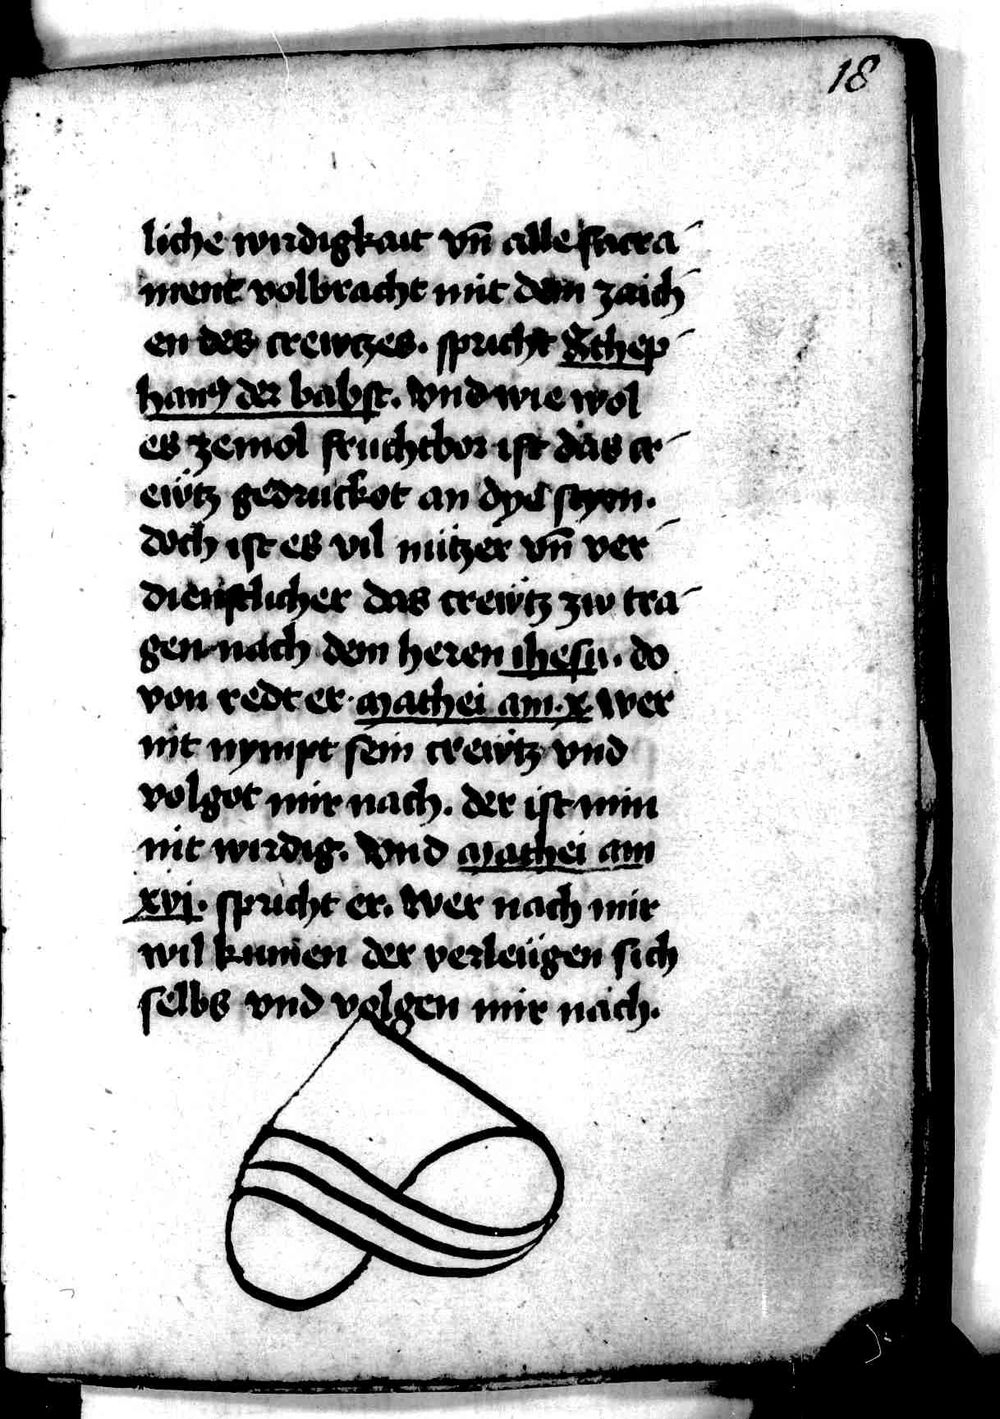 18
liche wirdigkait vn̄ alle sacra
ment volbracht mit dem zaich
en des crewtzes. spricht Sthep
hanꝰ der babst. Vnd wie wol
es zemol fruchtbor ist das cr
eẅtz gedruckot an dye styrn.
doch ist es vil nützer vn̄ ver
dienstlicher das creẅtz zw tra
gen nach dem heren ihesu. do
von redt er. Mathei am .x. Wer
nit nympt sein creẅtz vnd
volgot mir nach. der ist min
nit wirdig. Vnd Mathei am
xvj. spricht er. Wer nach mir
wil kumen der verleügen sich
selbs vnd volgen mir nach.